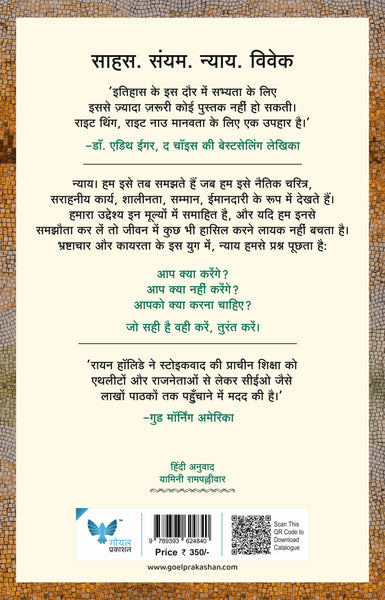 साहस. संयम. न्याय. विवेक
‘इतिहास के इस दौर में सभ्यता के लिए
इससे ज़्यादा ज़रूरी कोई पुस्तक नहीं हो सकती।
राइट थिंग, राइट नाउ मानवता के लिए एक उपहार है।’
–डॉ. एडिथ ईगर, द चॉइस की बेस्टसेलिंग लेखिका
न्याय। हम इसे तब समझते हैं जब हम इसे नैतिक चरित्र,
सराहनीय कार्य, शालीनता, सम्मान, ईमानदारी के रूप में देखते हैं।
हमारा उद्देश्य इन मूल्यों में समाहित है, और यदि हम इनसे
समझौता कर लें तो जीवन में कुछ भी हासिल करने लायक नहीं बचता है।
भ्रष्टाचार और कायरता के इस युग में, न्याय हमसे प्रश्न पूछता है:
आप क्या करेंगे?
आप क्या नहीं करेंगे?
आपको क्या करना चाहिए?
जो सही है वही करें, तुरंत करें।
‘रायन हॉलिडे ने स्टोइकवाद की प्राचीन शिक्षा को
एथलीटों और राजनेताओं से लेकर सीईओ जैसे
लाखों पाठकों तक पहुँचाने में मदद की है।’
–गुड मॉर्निंग अमेरिका
हिंदी अनुवाद
यामिनी रामपल्लीवार
गोयल
प्रकाशन
TM
9 789393 624840
Price ₹ 350/-
Scan This
QR Code to
Download
Catalogue
www.goelprakashan.com